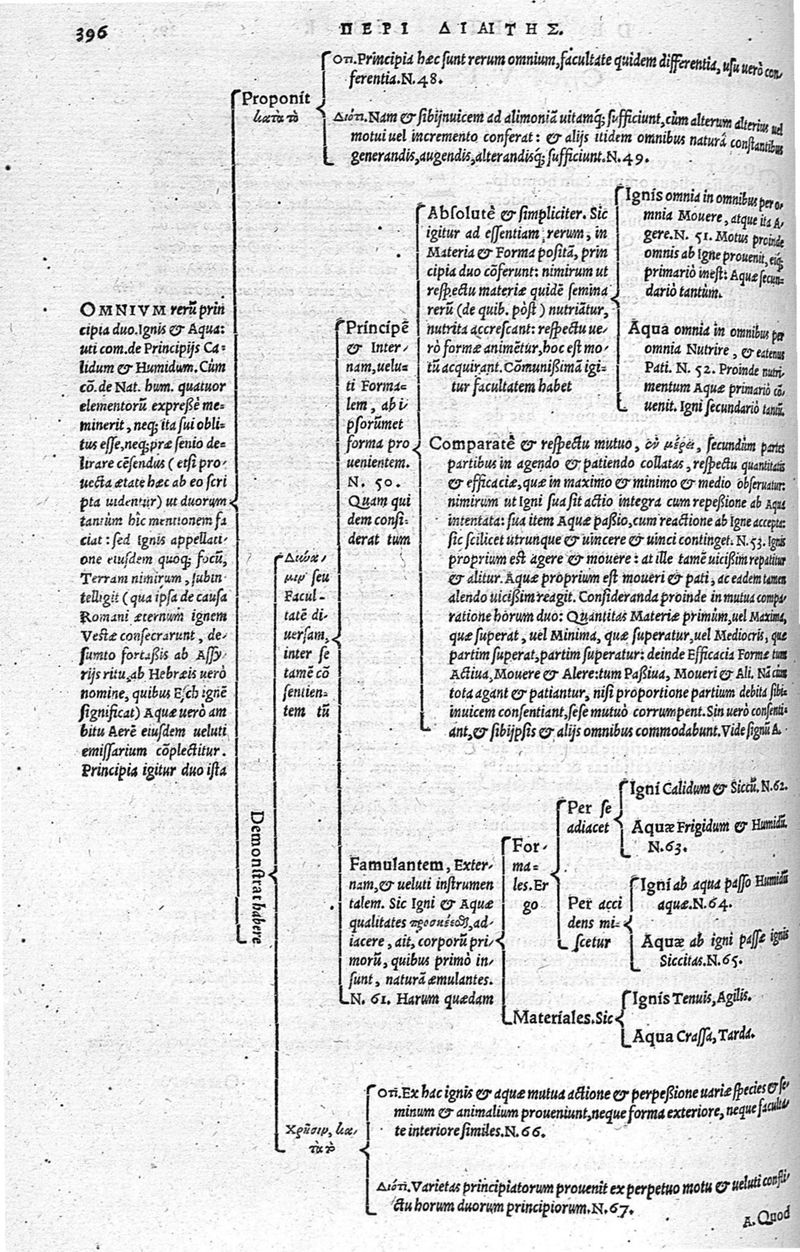 396
ΠΕΡΙ ΔΙΑΙΤΗΣ.
OMNIVM rerū prin
cipia duo. Ignis & Aqua:
uti com. de Principijs Ca-
lidum & Humidum. Cùm
cō. de Nat. hum. quatuor
elementorū expressè me-
minerit, neq; ita sui obli-
tus esse, neq; præ senio de-
lirare cēsendus (etsi pro-
uecta ætate hæc ab eo scri
pta uidentur) ut duorum
tantùm hîc mentionem fa
ciat: sed Ignis appellati-
one eiusdem quoq; focū,
Terram nimirum, subin-
telligit (qua ipsa de causa
Romani æternum ignem
Vestæ consecrarunt, de-
sumto fortaßis ab Assy-
rijs ritu, ab Hebræis uerò
nomine, quibus Esch ignē
significat) Aquæ uerò am
bitu Aerē eiusdem ueluti
emissarium cōplectitur.
Principia igitur duo ista
Proponit
κατὰ τὸ
Ὅτι. Principia hæc sunt rerum omnium, facultate quidem differentia, usu uerò con-
ferentia. N. 48.
Διότι. Nam & sibijnuicem ad alimoniā uitamq; sufficiunt, cùm alterum alterius uel
motui uel incremento conferat: & alijs itidem omnibus naturâ constantibus
generandis, augendis, alterandisq; sufficiunt. N. 49.
Demonstrat habere
Δύναμιν seu
Facul-
tatē di-
uersam,
inter se
tamē cō
sentien-
tem tū
Principē
& Inter-
nam, uelu-
ti Forma-
lem, ab i-
psorūmet
forma pro
uenientem.
N. 50.
Quam qui
dem consi-
derat tum
Absolutè & simpliciter. Sic
igitur ad essentiam rerum, in
Materia & Forma positā, prin
cipia duo cōferunt: nimirum ut
respectu materiæ quidē semina
rerū (de quib. pòst) nutriātur,
nutrita accrescant: respectu ue-
rò formæ animētur, hoc est mo-
tū acquirant. Cōmunißimā igi-
tur facultatem habet
Ignis omnia in omnibus per o-
mnia Mouere, atque ita A-
gere. N. 51. Motus proinde
omnis ab Igne prouenit, eiq;
primariò inest: Aquæ secun-
dariò tantùm.
Aqua omnia in omnibus per
omnia Nutrire, & eatenus
Pati. N. 52. Proinde nutri-
mentum Aquæ primariò cō-
uenit. Igni secundariò tantū.
Comparatè & respectu mutuo, secundùm partes
partibus in agendo & patiendo collatas, respectu quantitatis
& efficaciæ, quæ in maximo & minimo & medio obseruatur:
nimirum ut Igni sua sit actio integra cum repeßione ab Aqua
intentata: sua item Aquæ paßio, cum reactione ab Igne accepta:
sic scilicet utrunque & uincere & uinci continget. N. 53. Ignis
proprium est agere & mouere: at ille tamē uicißim repatitur
& alitur. Aquæ proprium est moueri & pati, ac eadem tamen
alendo uicißim reagit. Consideranda proinde in mutua compa-
ratione horum duo: Quantitas Materiæ primùm, uel Maxima,
quæ superat, uel Minima, quæ superatur, uel Mediocris, quæ
partim superat, partim superatur: deinde Efficacia Formæ tum
Actiua, Mouere & Alere: tum Paßiua, Moueri & Ali. Nā cùm
tota agant & patiantur, nisi proportione partium debita sibi-
inuicem consentiant, sese mutuò corrumpent. Sin uerò consenti-
ant, & sibijpsis & alijs omnibus commodabunt. Vide signū A.
Famulantem, Exter-
nam, & ueluti instrumen
talem. Sic Igni & Aquæ
qualitates προσκεῖσθαι, ad-
iacere, ait, corporū pri-
morū, quibus primò in-
sunt, naturā æmulantes.
N. 61. Harum quædam
For-
ma-
les. Er
go
Per se
adiacet
Igni Calidum & Siccū. N. 62.
Aquæ Frigidum & Humidū.
N. 63.
Per acci
dens mi-
scetur
Igni ab aqua passo Humidū
aquæ. N. 64.
Aquæ ab igni passæ ignis
Siccitas. N. 65.
Materiales. Sic
Ignis Tenuis, Agilis.
Aqua Crassa, Tarda.
Χρῆσιν, κα-
τὰ τὸ
Ὅτι. Ex hac ignis & aquæ mutua actione & perpeßione uariæ species & se-
minum & animalium proueniunt, neque forma exteriore, neque faculta-
te interiore similes. N. 66.
Διότι. Varietas principiatorum prouenit ex perpetuo motu & ueluti confli-
ctu horum duorum principiorum. N. 67.
A. Quod